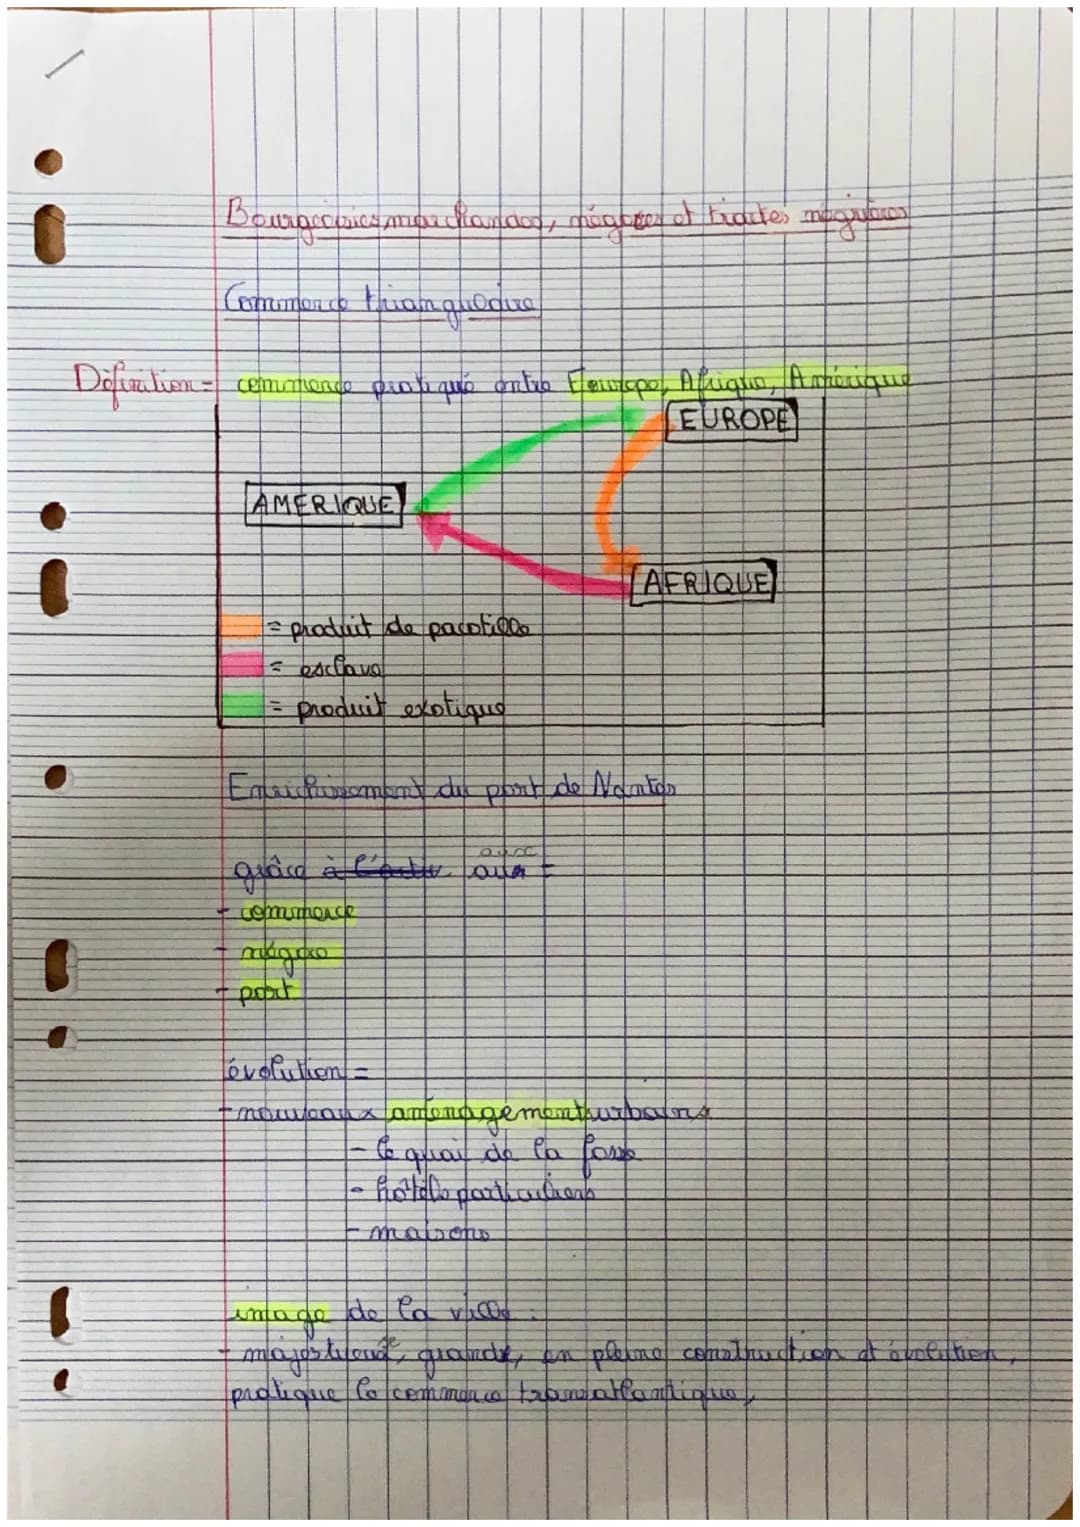 Bourgeoisies marchandes, négoces et traites négrières
Commerce triangulaire
Définition = commerce pratiqué entre l'europe, Afrique, Amérique
EUROPE
AMERIQUE
AFRIQUE
= produit de pacotille
= esclave
= produit exotique
Enrichissement du port de Nantes
aux
grâce à aux =
- commerce
- négoce
- port
évolution =
- nouveaux aménagement urbains
- le quai de la fosse
- hôtels particuliers
- maisons
image de la ville :
- majestueuse, grande, en pleine construction et évolution,
pratique le commerce transatlantique,